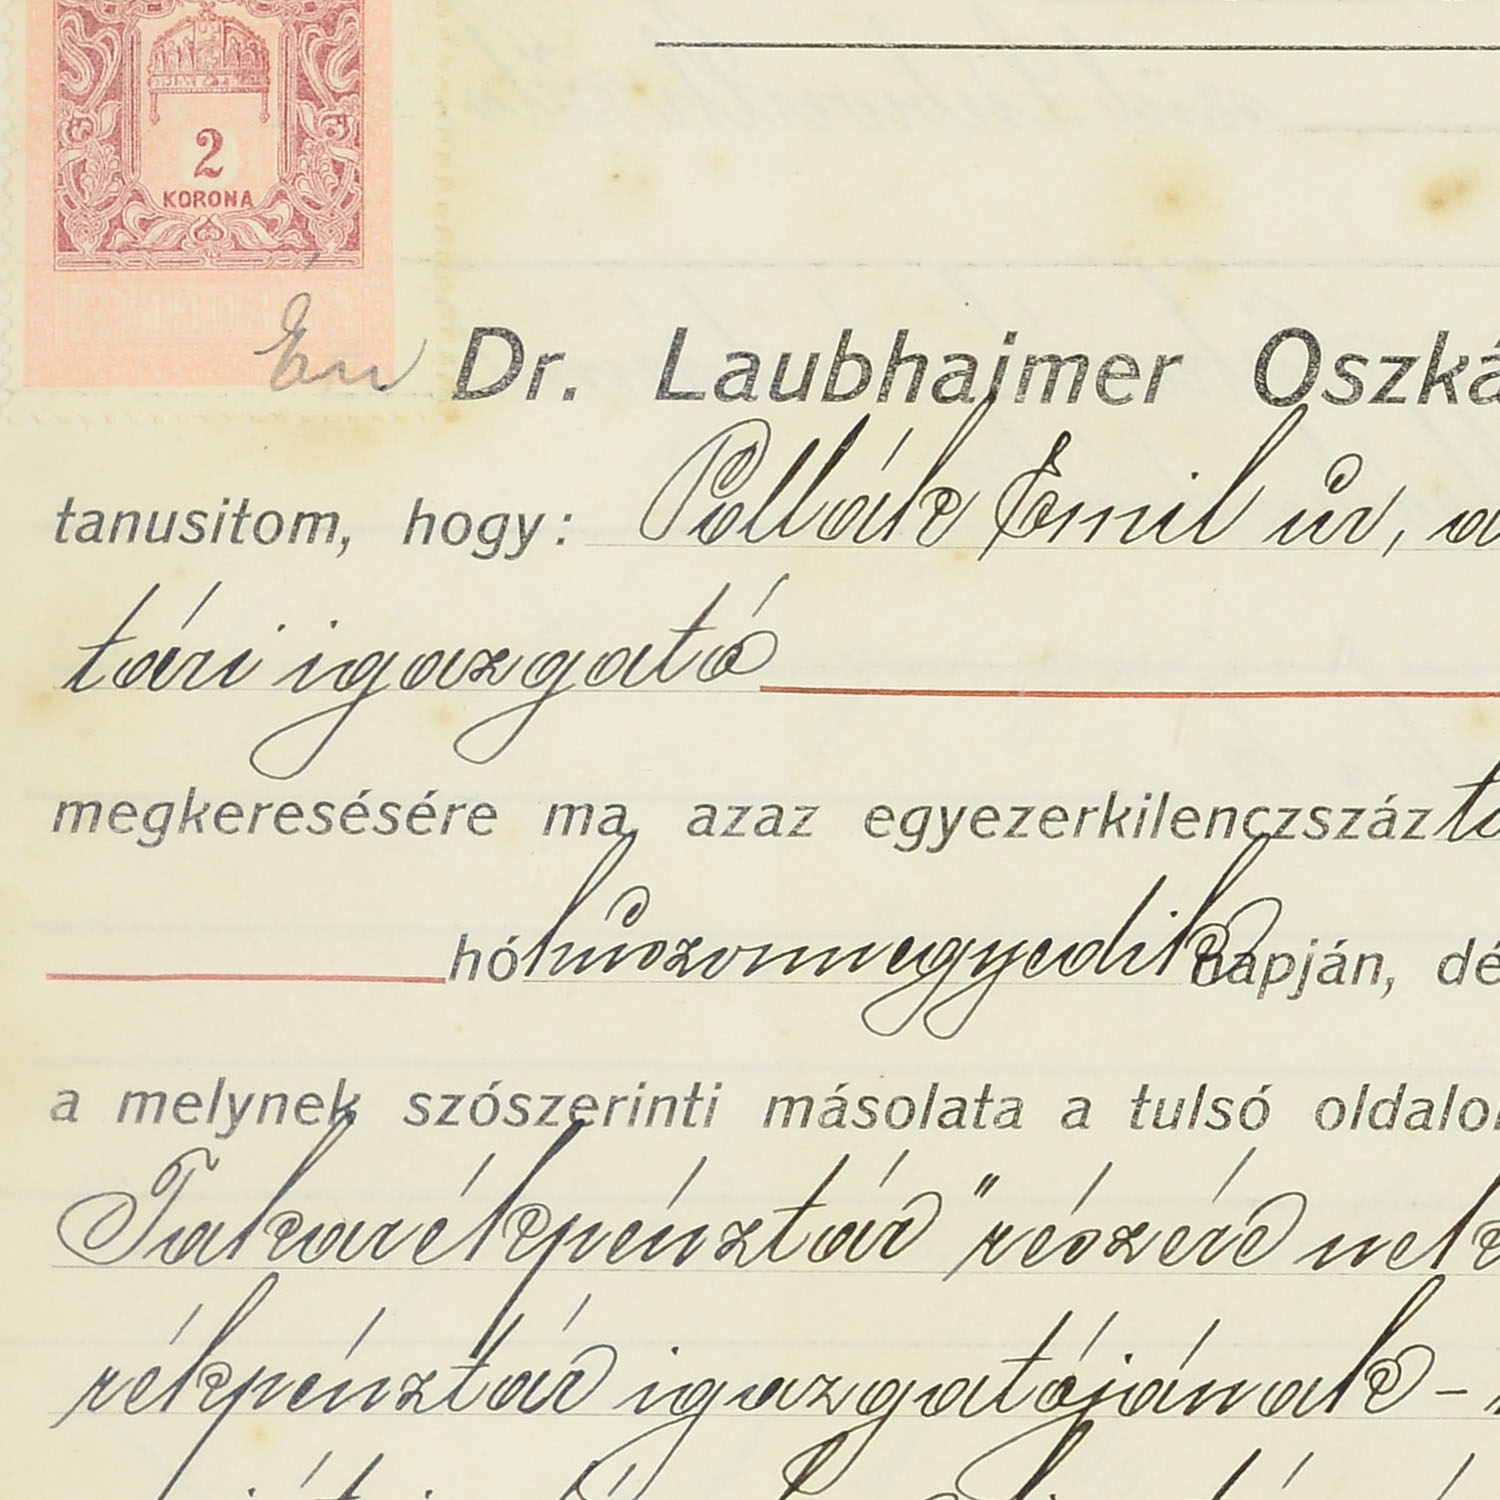 2
KORONA
Én Dr. Laubhaimer Oszká
tanusitom, hogy: Pollák Emil úr, a
tári igazgató
megkeresésére ma, azaz egyezerkilenczszáz ti
hó huszonnegyedik napján, dé
a melynek szószerinti másolata a tulsó oldalon
Takarékpénztár" részére nek
rékpénztár igazgatójának -